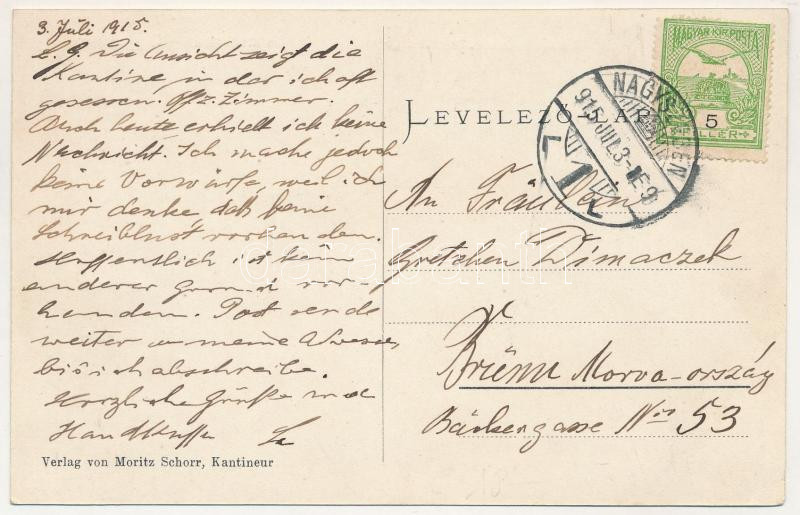 3. Juli 1915.
L. G. Die Ansicht zeigt die
Kantine in der ich oft
gesessen. Offz. Zimmer.
Auch heute erhielt ich keine
Nachricht. Ich mache jedoch
keine Vorwürfe, weil ich
mir denke daß keine
Schreiblust vorhanden.
Hoffentlich ist kein
anderer Grund vor-
handen. Post sende
weiter an meine Adresse
bis ich abschreibe.
Herzliche Grüße und
Handküsse
Verlag von Moritz Schorr, Kantineur
LEVELEZŐ-LAP
MAGYAR KIR. POSTA
5
915 JUL. 3
An Fräulein
Gretchen Dimaczek
Brünn Morva-ország
Bäckergasse No 53
darabanth